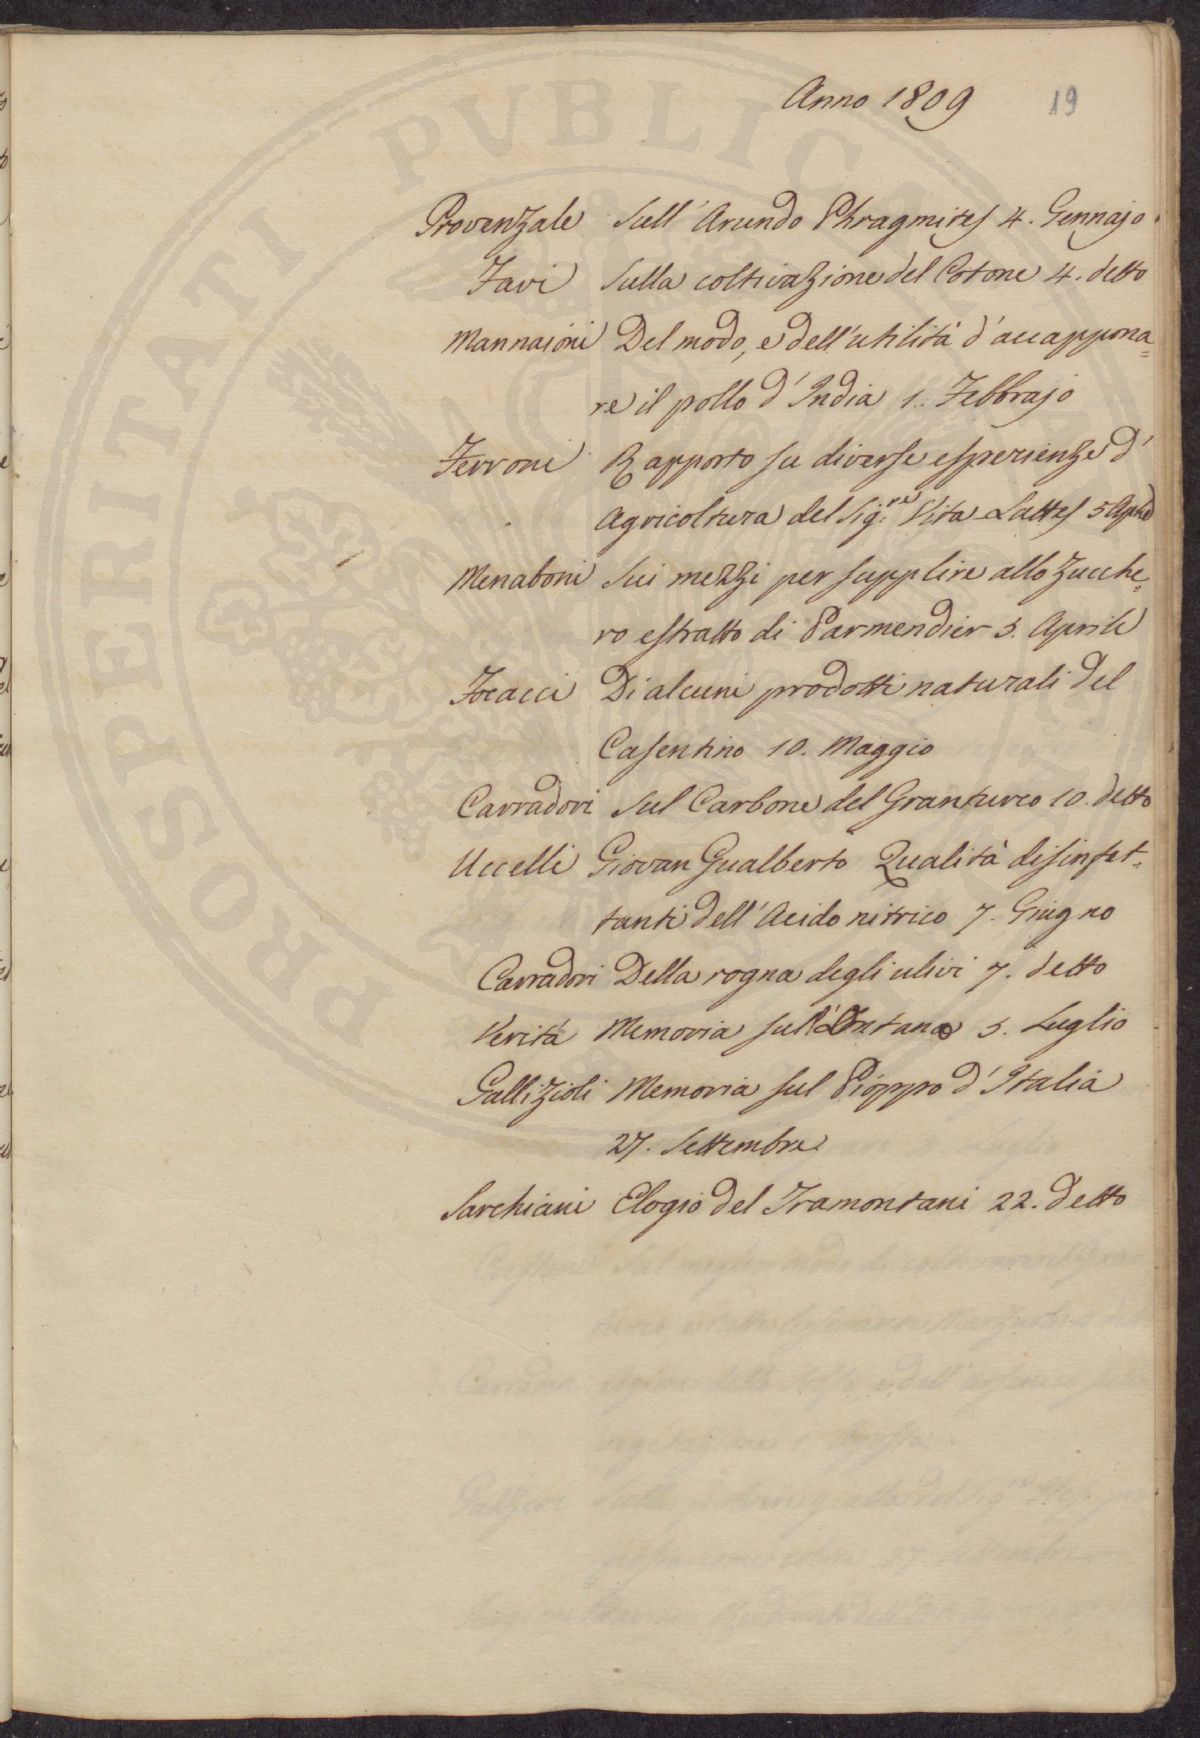 Anno 1809 19
Provenzale Sull' Arundo Phragmites 4. Gennajo
Favi Sulla coltivazione del Cotone 4. detto
Mannaioni Del modo, e dell'utilità d'accappona=
re il pollo d'India 1. Febbrajo
Ferroni Rapporto su diverse esperienze d'
Agricoltura del Sig:re Vita Lattes 5 Aple
Menaboni Sui mezzi per supplire allo Zucche=
ro estratto di Parmendier 5. Aprile
Focacci Di alcuni prodotti naturali del
Casentino 10. Maggio
Carradori Sul Carbone del Granturco 10. detto
Uccelli Giovan Gualberto Qualità disinfet=
tanti dell'Acido nitrico 7. Giugno
Carradori Della rogna degli ulivi 7. detto
Verità Memoria sull'Ontano 5. Luglio
Gallizioli Memoria sul Pioppo d'Italia
27. Settembre
Sarchiani Elogio del Tramontani 22. detto
PROSPERITATI PVBLIC